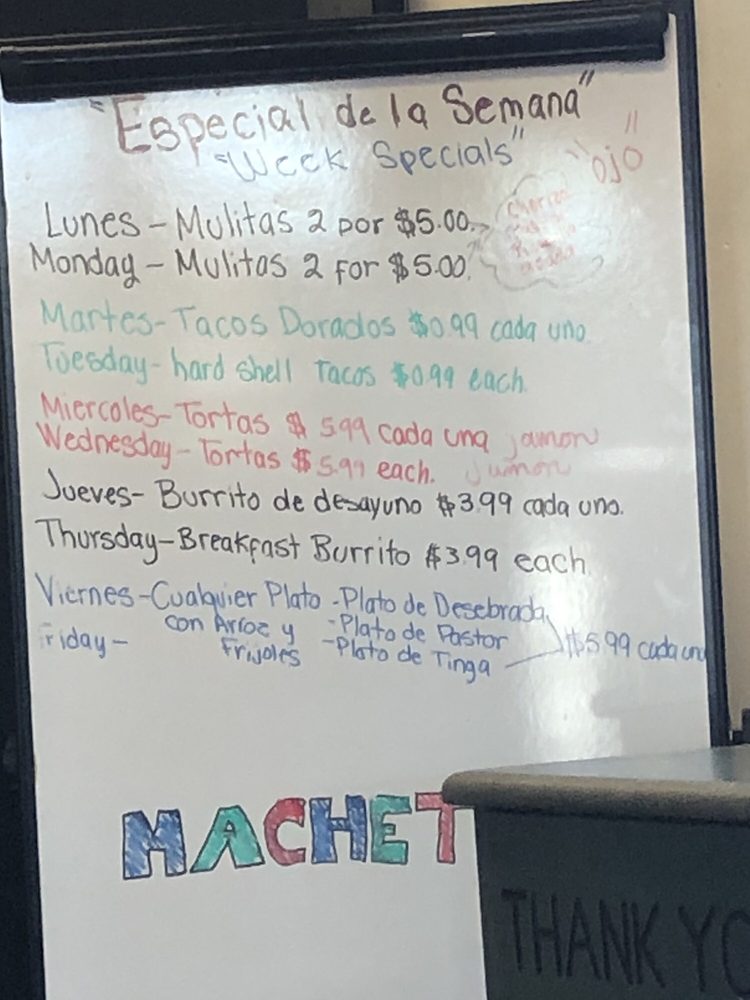 "Especial de la Semana"
"Week Specials"
"ojo"
Lunes - Mulitas 2 por $5.00.
Monday - Mulitas 2 for $5.00.
Martes - Tacos Dorados $0.99 cada uno.
Tuesday - hard shell Tacos $0.99 each.
Miercoles - Tortas $ 5.99 cada una jamon
Wednesday - Tortas $5.99 each. Jamon
Jueves - Burrito de desayuno $3.99 cada uno.
Thursday - Breakfast Burrito $3.99 each.
Viernes - Cualquier Plato - Plato de Desebrada
con Arroz y - Plato de Pastor
Friday - Frijoles - Plato de Tinga $5.99 cada uno
MACHET
THANK YO